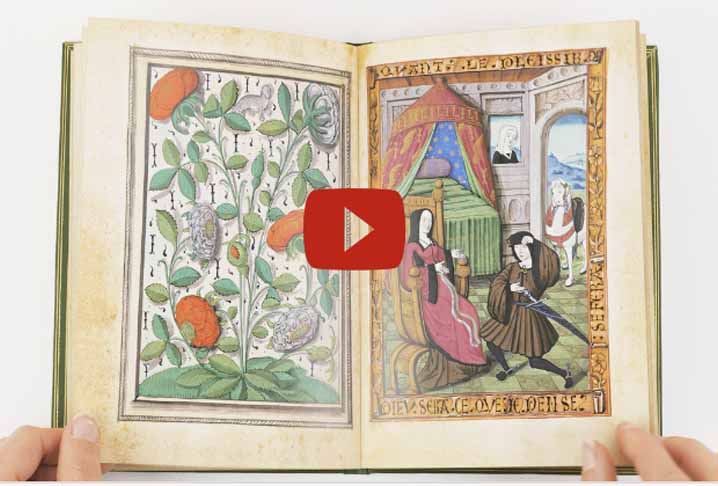 QVANT : LE PLEISSIR A
: SE FERA
DIEV . SERA . CE . QVE . JE . PENSE :